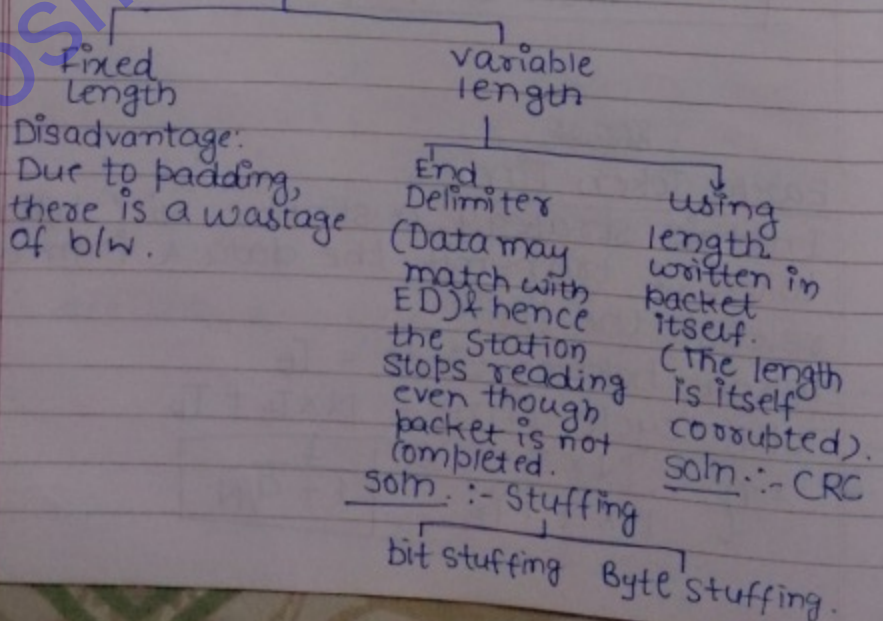 Fixed
Length
Disadvantage:
Due to padding,
there is a wastage
of b/w.
Variable
length
End
Delimiter
(Data may
match with
ED) & hence
the station
stops reading
even though
packet is not
completed.
Soln. :- Stuffing
bit stuffing Byte stuffing.
using
length
written in
packet
itself.
(The length
is itself
corrupted).
Soln. :- CRC